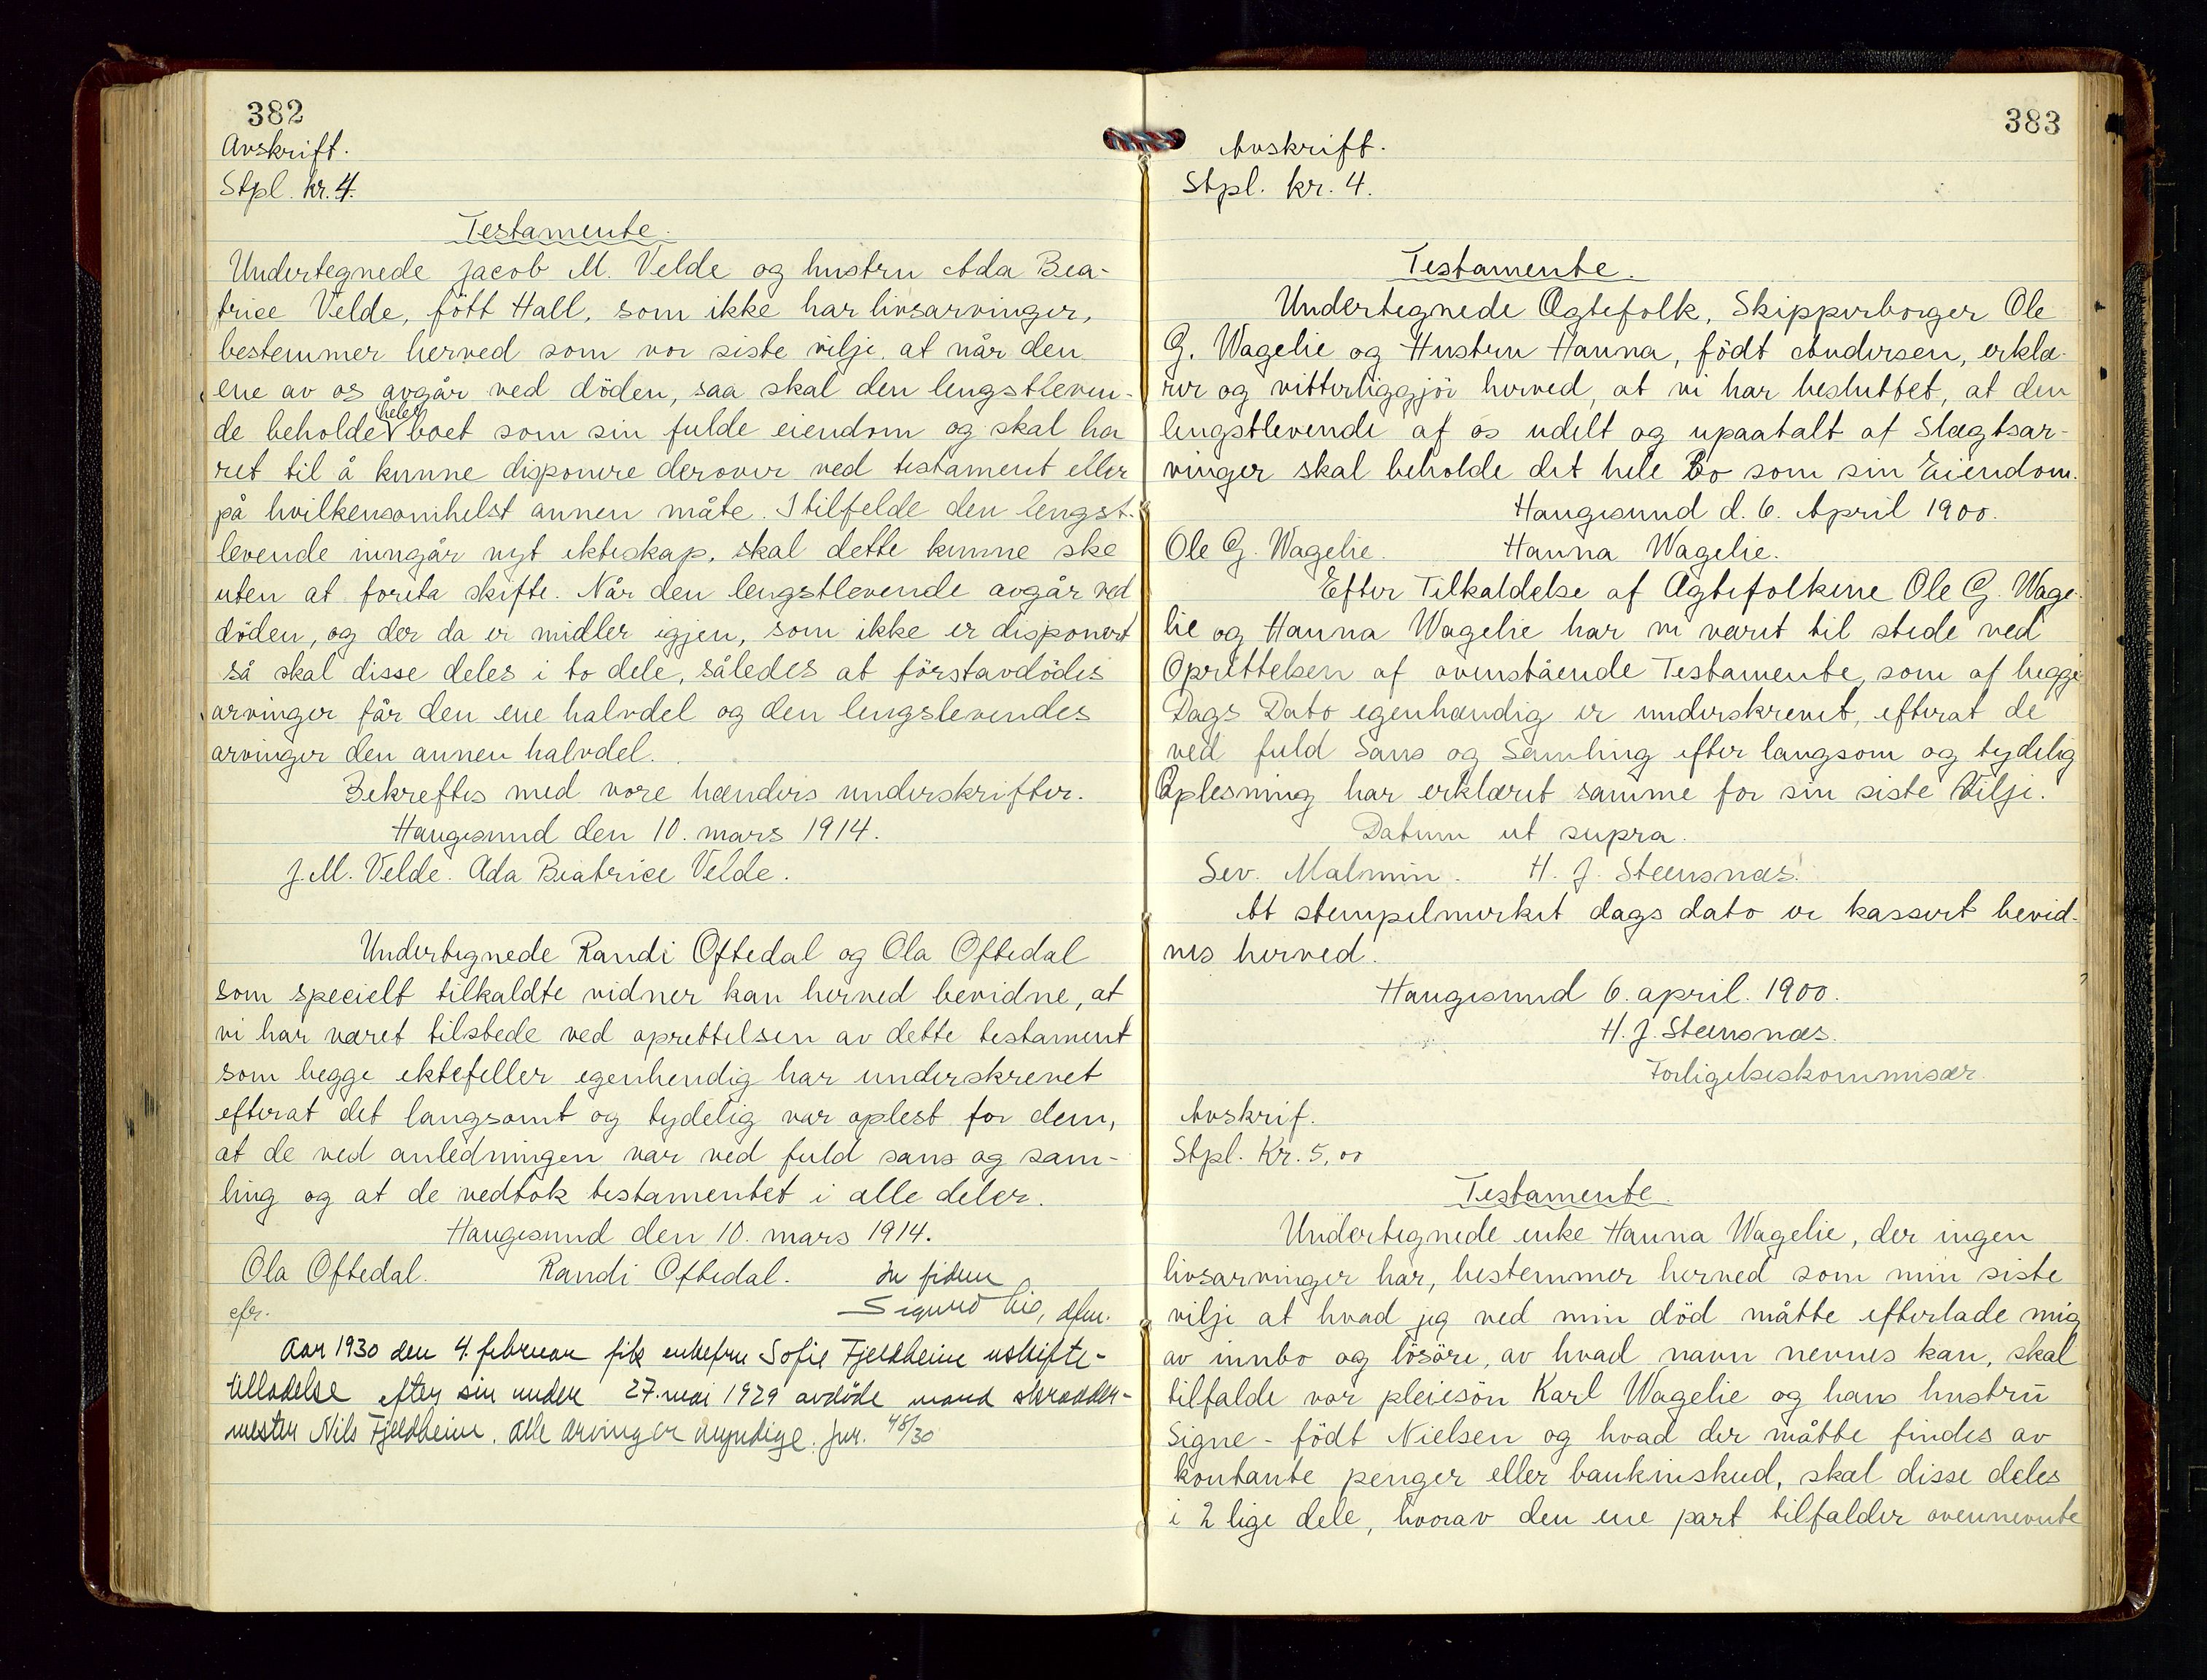 382
Avskrift.
Stpl. kr. 4.
Testamente.
Undertegnede Jacob M. Velde og hustru Ada Bea-
trice Velde, fött Hall, som ikke har livsarvinger,
bestemmer herved som vor siste vilje, at når den
ene av os avgår ved döden, saa skal den lengstleven-
de beholde hele boet som sin fulde eiendom og skal ha
ret til å kunne disponere derover ved testament eller
på hvilkensomhelst annen måte. I tilfelde den lengst-
levende inngår nyt ekteskap, skal dette kunne ske
uten at foreta skifte. Når den lengstlevende avgår ved
döden, og der da er midler igjen, som ikke er disponert
så skal disse deles i to dele, således at förstavdödes
arvinger får den ene halvdel og den lengslevendes
arvinger den annen halvdel.
Bekreftes med vore hænders underskrifter.
Haugesund den 10. mars 1914.
J. M. Velde. Ada Beatrice Velde.
Undertegnede Randi Oftedal og Ola Oftedal
som specielt tilkaldte vidner kan herved bevidne, at
vi har været tilstede ved oprettelsen av dette testament
som begge ektefeller egenhendig har underskrevet
efterat det langsomt og tydelig var oplest for dem,
at de ved anledningen var ved fuld sans og sam-
ling og at de vedtok testamentet i alle deler.
Haugesund den 10. mars 1914.
Ola Oftedal. Randi Oftedal. In fidem
Sigurd Lie, dfm.
Aar 1930 den 4. februar fik enkefru Sofie Fjeldheim uskifte-
tilladelse efter sin under 27. mai 1929 avdöde mand skrædder-
mester Nils Fjeldheim. Alle arvinger myndige. Jnr. 48/30
383
Avskrift.
Stpl. kr. 4.
Testamente.
Undertegnede Ægtefolk, Skipperborger Ole
G. Wagelie og Hustru Hanna, födt Andersen, erklæ-
rer og vitterliggjör herved, at vi har besluttet, at den
lengstlevende af os udelt og upaatalt af Slægtsar-
vinger skal beholde det hele Bo som sin Eiendom.
Haugesund d. 6. April 1900.
Ole G. Wagelie. Hanna Wagelie.
Efter Tilkaldelse af Ægtefolkene Ole G. Wage-
lie og Hanna Wagelie har vi været til stede ved
Oprettelsen af ovenstående Testamente, som af begge
Dags Dato egenhændig er underskrevet, efterat de
ved fuld Sans og Samling efter langsom og tydelig
Oplesning har erklæret samme for sin siste Vilje.
Datum ut supra.
Sev. Malmin. H. J. Steensnæs.
At stempelmerket dags dato er kassert bevid-
nes herved.
Haugesund 6. april. 1900.
H. J. Steensnæs.
Forligelseskommisær.
Avskrif.
Stpl. Kr. 5,00
Testamente.
Undertegnede enke Hanna Wagelie, der ingen
livsarvinger har, bestemmer herved som min siste
vilje at hvad jeg ved min död måtte efterlade mig
av innbo og lösöre, av hvad navn nevnes kan, skal
tilfalde vor pleiesön Karl Wagelie og hans hustru
Signe - födt Nielsen og hvad der måtte findes av
kontante penger eller bankinskud, skal disse deles
i 2 lige dele, hvorav den ene part tilfalder ovennevnte